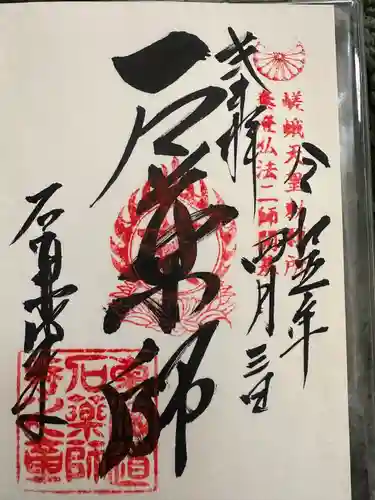 嵯峨天皇勅願所
泰澄弘法二師開基
令和五年
四月三日
奉拝
石薬師
石薬師寺
東海道
石薬師
寺之章